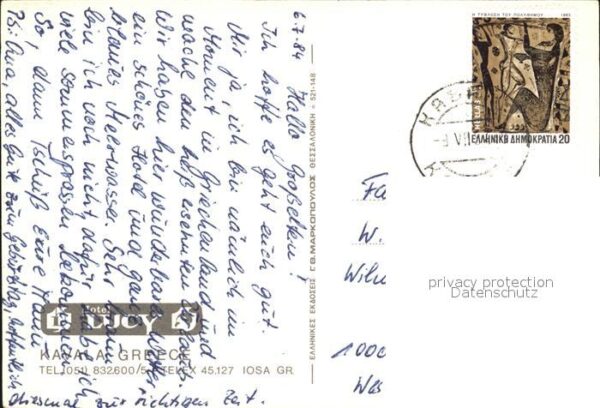 6.7.84
Hallo Großeltern!
Ich hoffe es geht euch gut.
Mir ja, ich bin nämlich im
Moment in Griechenland und
mache den
Wir haben hier wunderbares Wetter
ein schönes Hotel und ganz
tolles Meerwasser. Sehr braun
bin ich noch nicht dafür habe ich
viele Sommersprossen bekommen.
So, dann Tschüß Eure
Ps: Oma, alles Gute zum Geburtstag, hoffentlich
diesmal zur richtigen Zeit.
Hotel
LUCY
KAVALA GREECE
TEL.(051) 832.600/5 TELEX 45.127 IOSA GR.
ΕΛΛΗΝΙΚΕΣ ΕΚΔΟΣΕΙΣ Γ.Θ. ΜΑΡΚΟΠΟΥΛΟΣ ΘΕΣΣΑΛΟΝΙΚΗ 521-148
Η ΤΥΦΛΩΣΗ ΤΟΥ ΠΟΛΥΦΗΜΟΥ 1983
ΕΛΛΗΝΙΚΗ ΔΗΜΟΚΡΑΤΙΑ 20
Fa
W.
Wilm
privacy protection
Datenschutz
1000